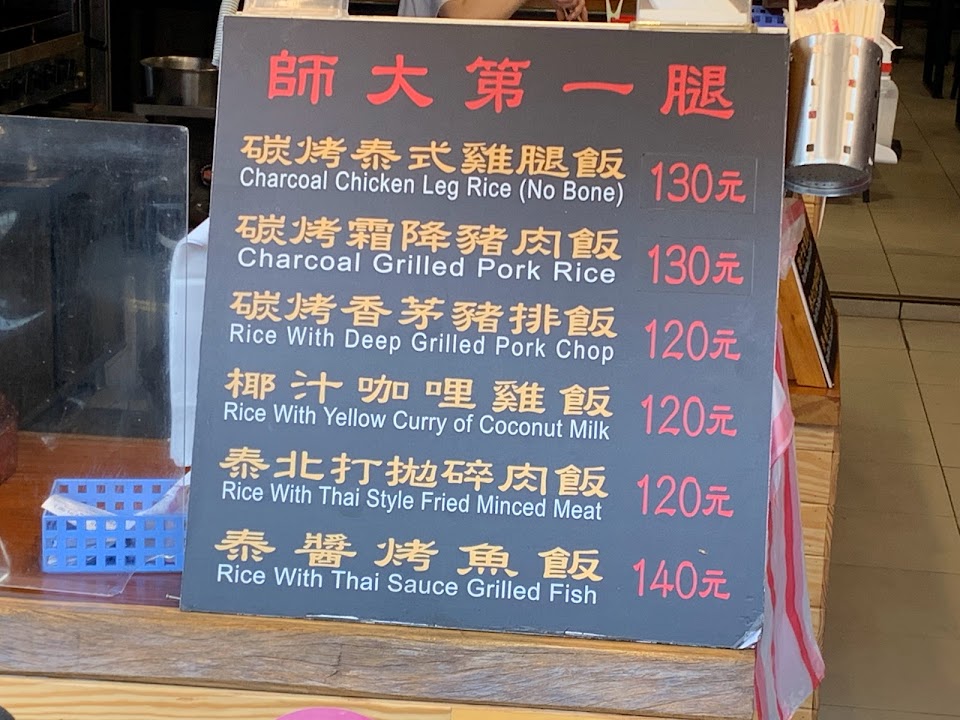 師大第一腿
碳烤泰式雞腿飯 130元
Charcoal Chicken Leg Rice (No Bone)
碳烤霜降豬肉飯 130元
Charcoal Grilled Pork Rice
碳烤香茅豬排飯 120元
Rice With Deep Grilled Pork Chop
椰汁咖哩雞飯 120元
Rice With Yellow Curry of Coconut Milk
泰北打拋碎肉飯 120元
Rice With Thai Style Fried Minced Meat
泰醬烤魚飯 140元
Rice With Thai Sauce Grilled Fish